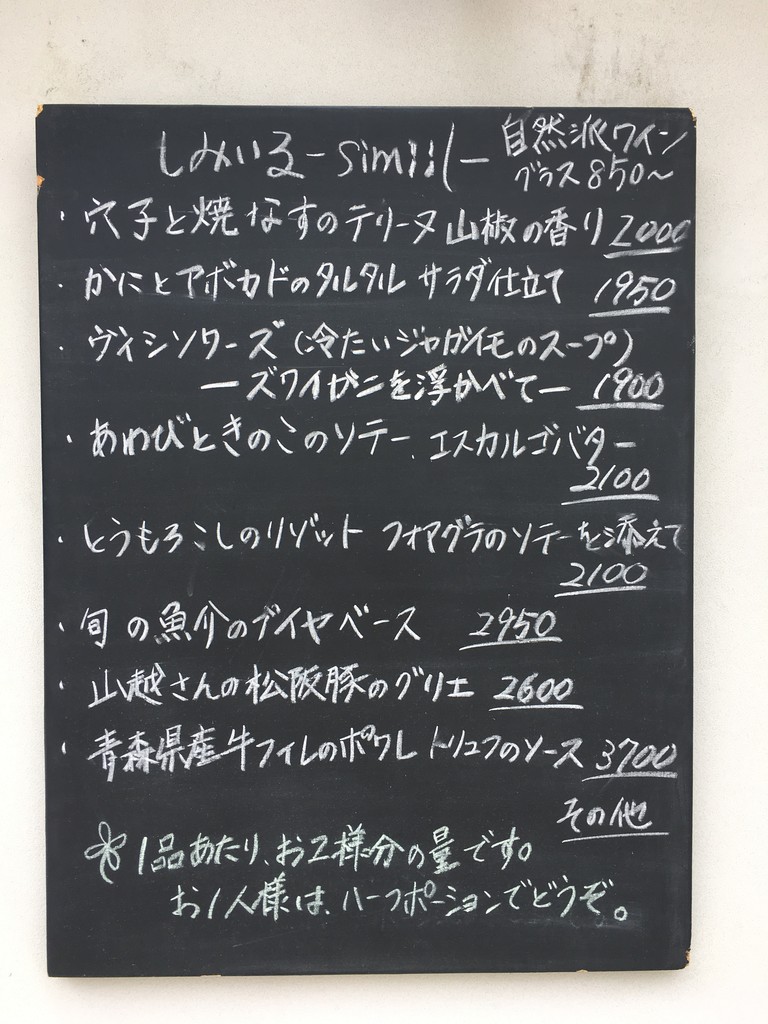 しみいる-simiil-
自然派ワイン
グラス850〜
・穴子と焼なすのテリーヌ 山椒の香り 2000
・かにとアボカドのタルタル サラダ仕立て 1950
・ヴィシソワーズ(冷たいジャガイモのスープ)
ーズワイガニを浮かべてー 1900
・あわびときのこのソテー、エスカルゴバター
2100
・とうもろこしのリゾット フォアグラのソテーを添えて
2100
・旬の魚介のブイヤベース 2950
・山越さんの松阪豚のグリエ 2600
・青森県産牛フィレのポワレ トリュフのソース 3700
その他
1品あたり、お2様分の量です。
お1人様は、ハーフポーションでどうぞ。